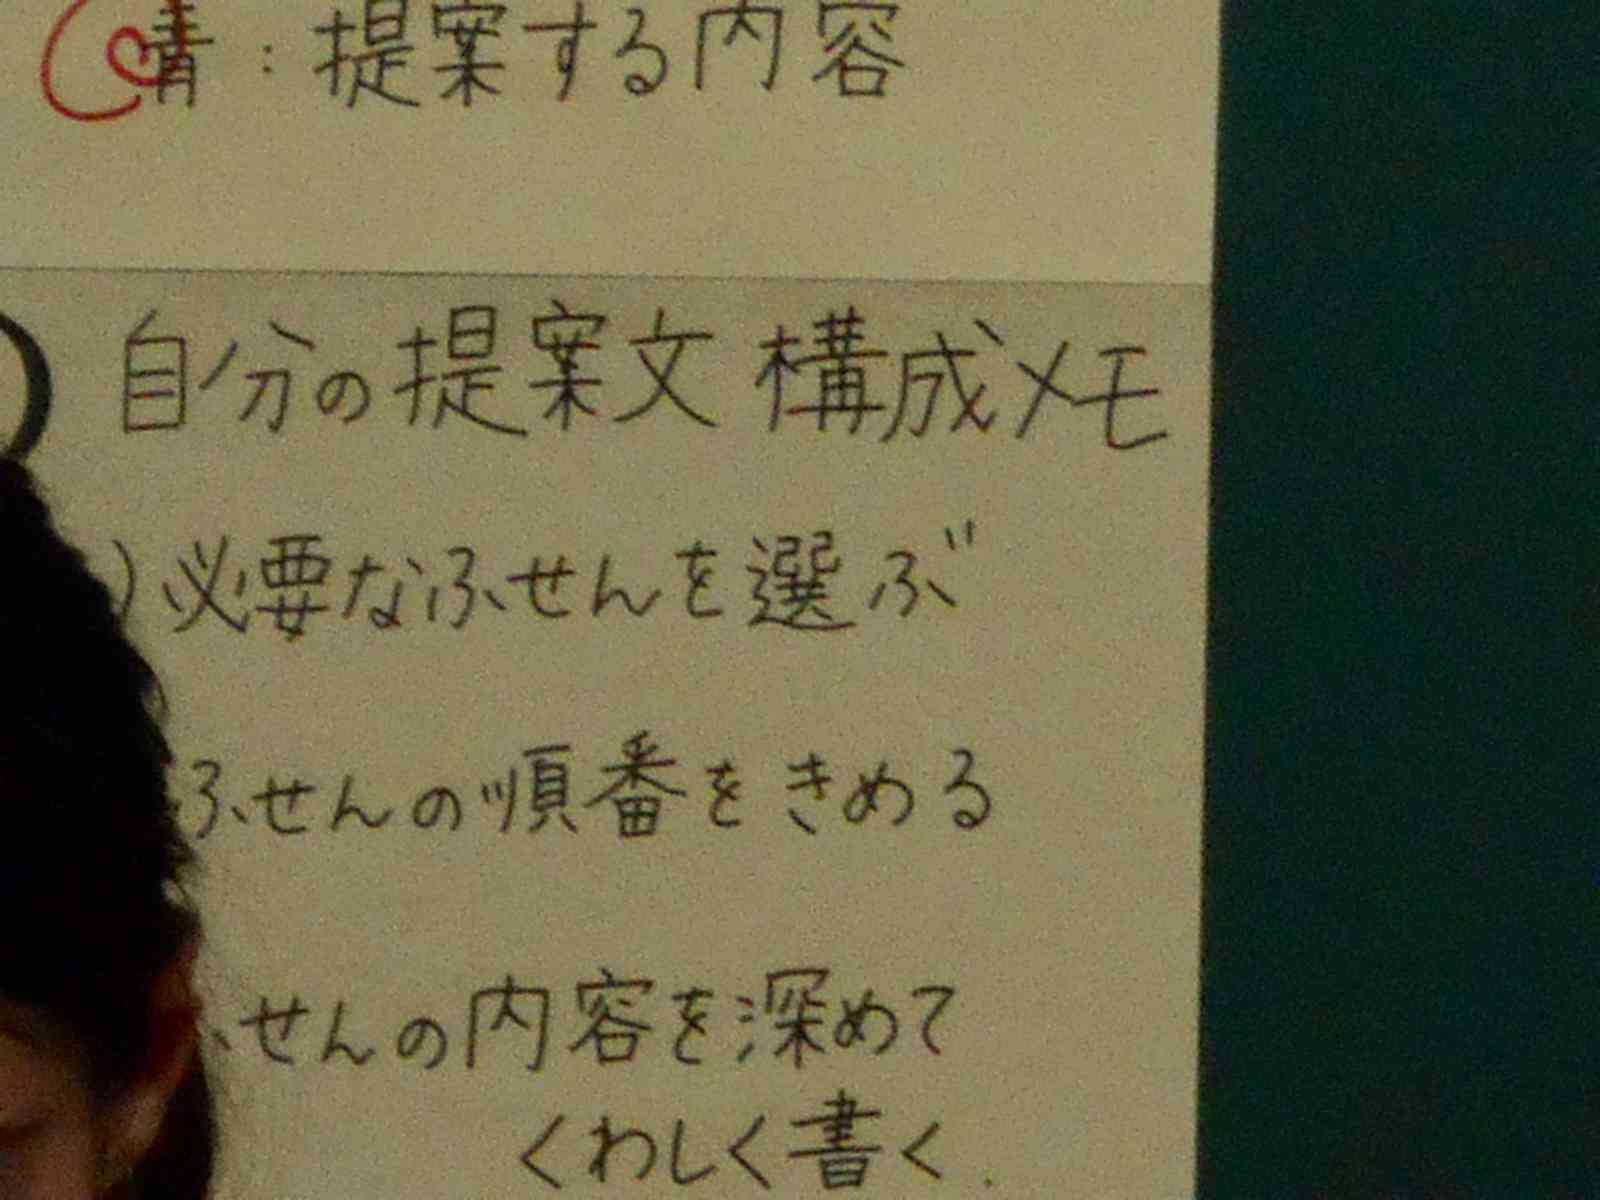 青：提案する内容
自分の提案文 構成メモ
)必要なふせんを選ぶ
ふせんの順番をきめる
せんの内容を深めて
くわしく書く.